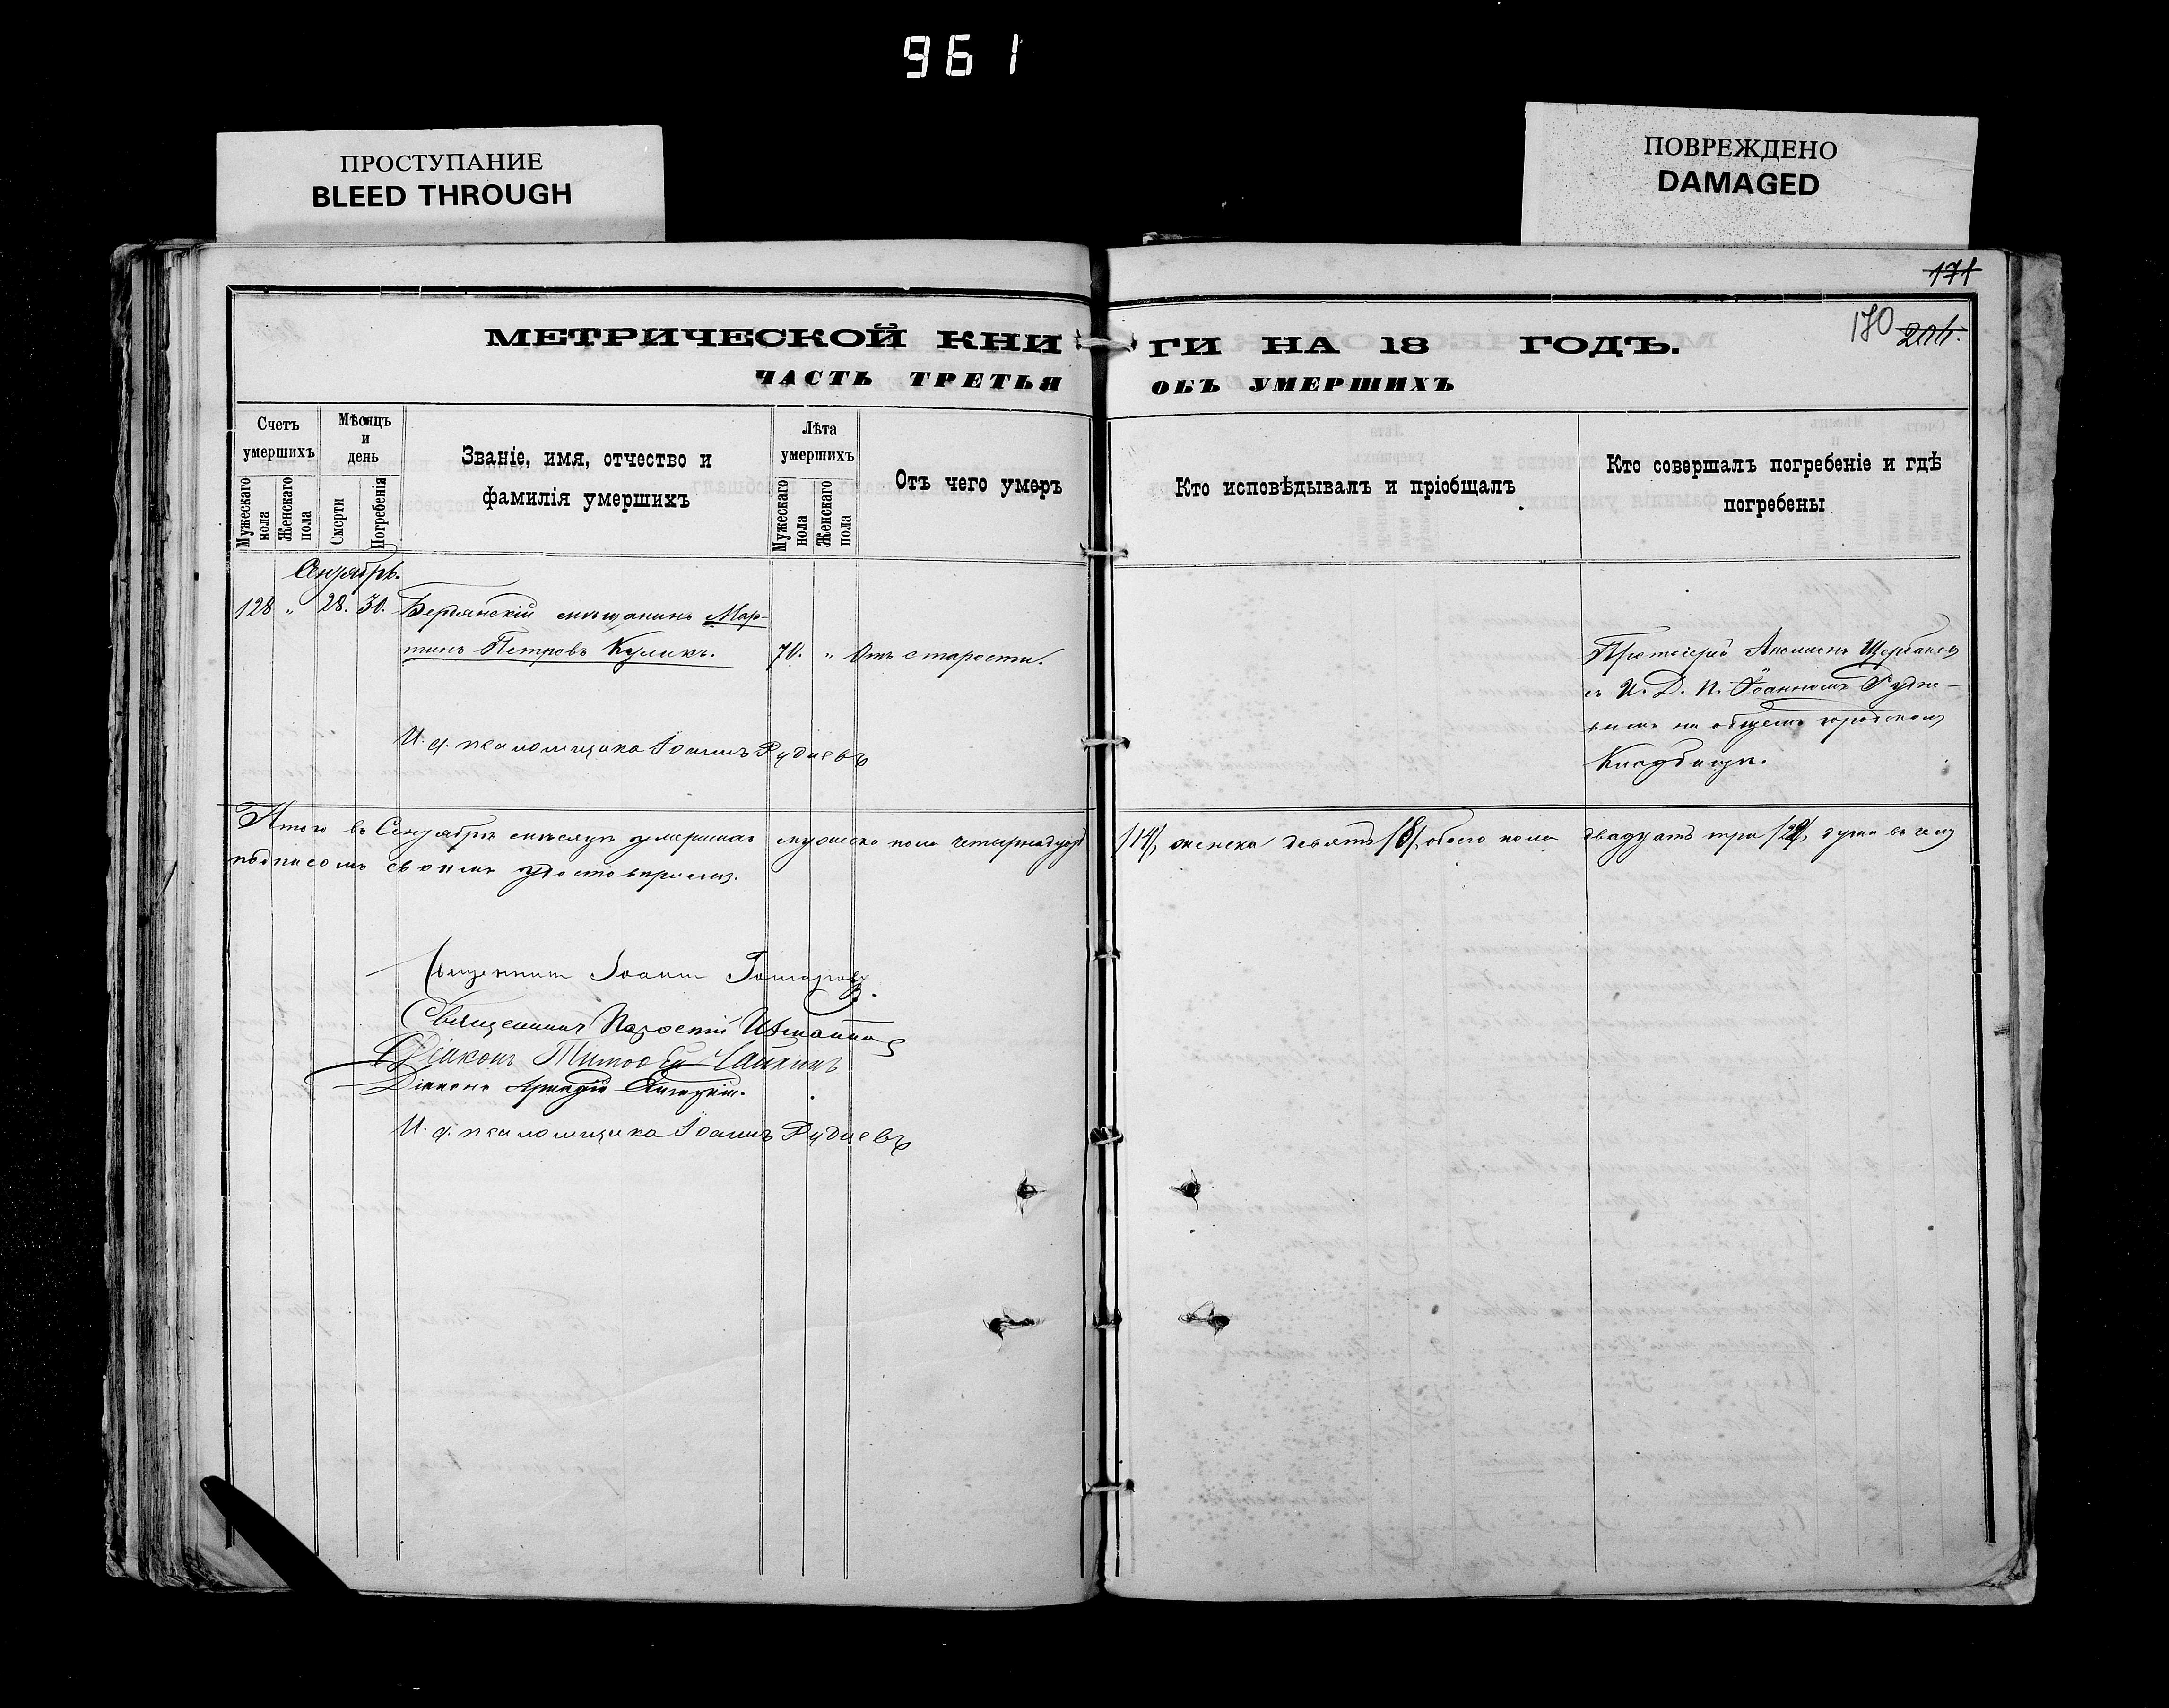 961
ПРОСТУПАНИЕ
BLEED THROUGH
ПОВРЕЖДЕНО
DAMAGED
171
170 206.
МЕТРИЧЕСКОЙ КНИ
ГИ НА 18 ГОДЪ.
ЧАСТЬ ТРЕТЬЯ
ОБЪ УМЕРШИХЪ
Счетъ умершихъ
Мужескаго пола
Женскаго пола
Мѣсяцъ и день
Смерти
Погребенія
Званіе, имя, отчество и
фамилія умершихъ
Лѣта умершихъ
Мужескаго пола
Женскаго пола
Отъ чего умеръ
Кто исповѣдывалъ и пріобщалъ
Кто совершалъ погребеніе и гдѣ
погребены
Сентябрь.
128 " 28. 30. Бердянскій мѣщанинъ Мар-
тинъ Петровъ Куликъ. 70. " Отъ старости.
Протоіерей Щербаков
съ И. Д. П. Іоанномъ Рудне-
вымъ на общемъ городском
Кладбищѣ.
И. д. псаломщика Іоаннъ Рудневъ
Итого въ Сентябрѣ мѣсяцѣ умершихъ мужеска пола четырнадцат /14/, женска девять /8/, обоего пола двадцать три /22/, душа въ чем
подписомъ своимъ удостовѣряем.
Священник Іоанн
Священникъ
Діаконъ Тимофей Чайкинъ
Діаконъ Аркадій
И. д. псаломщика Іоаннъ Рудневъ